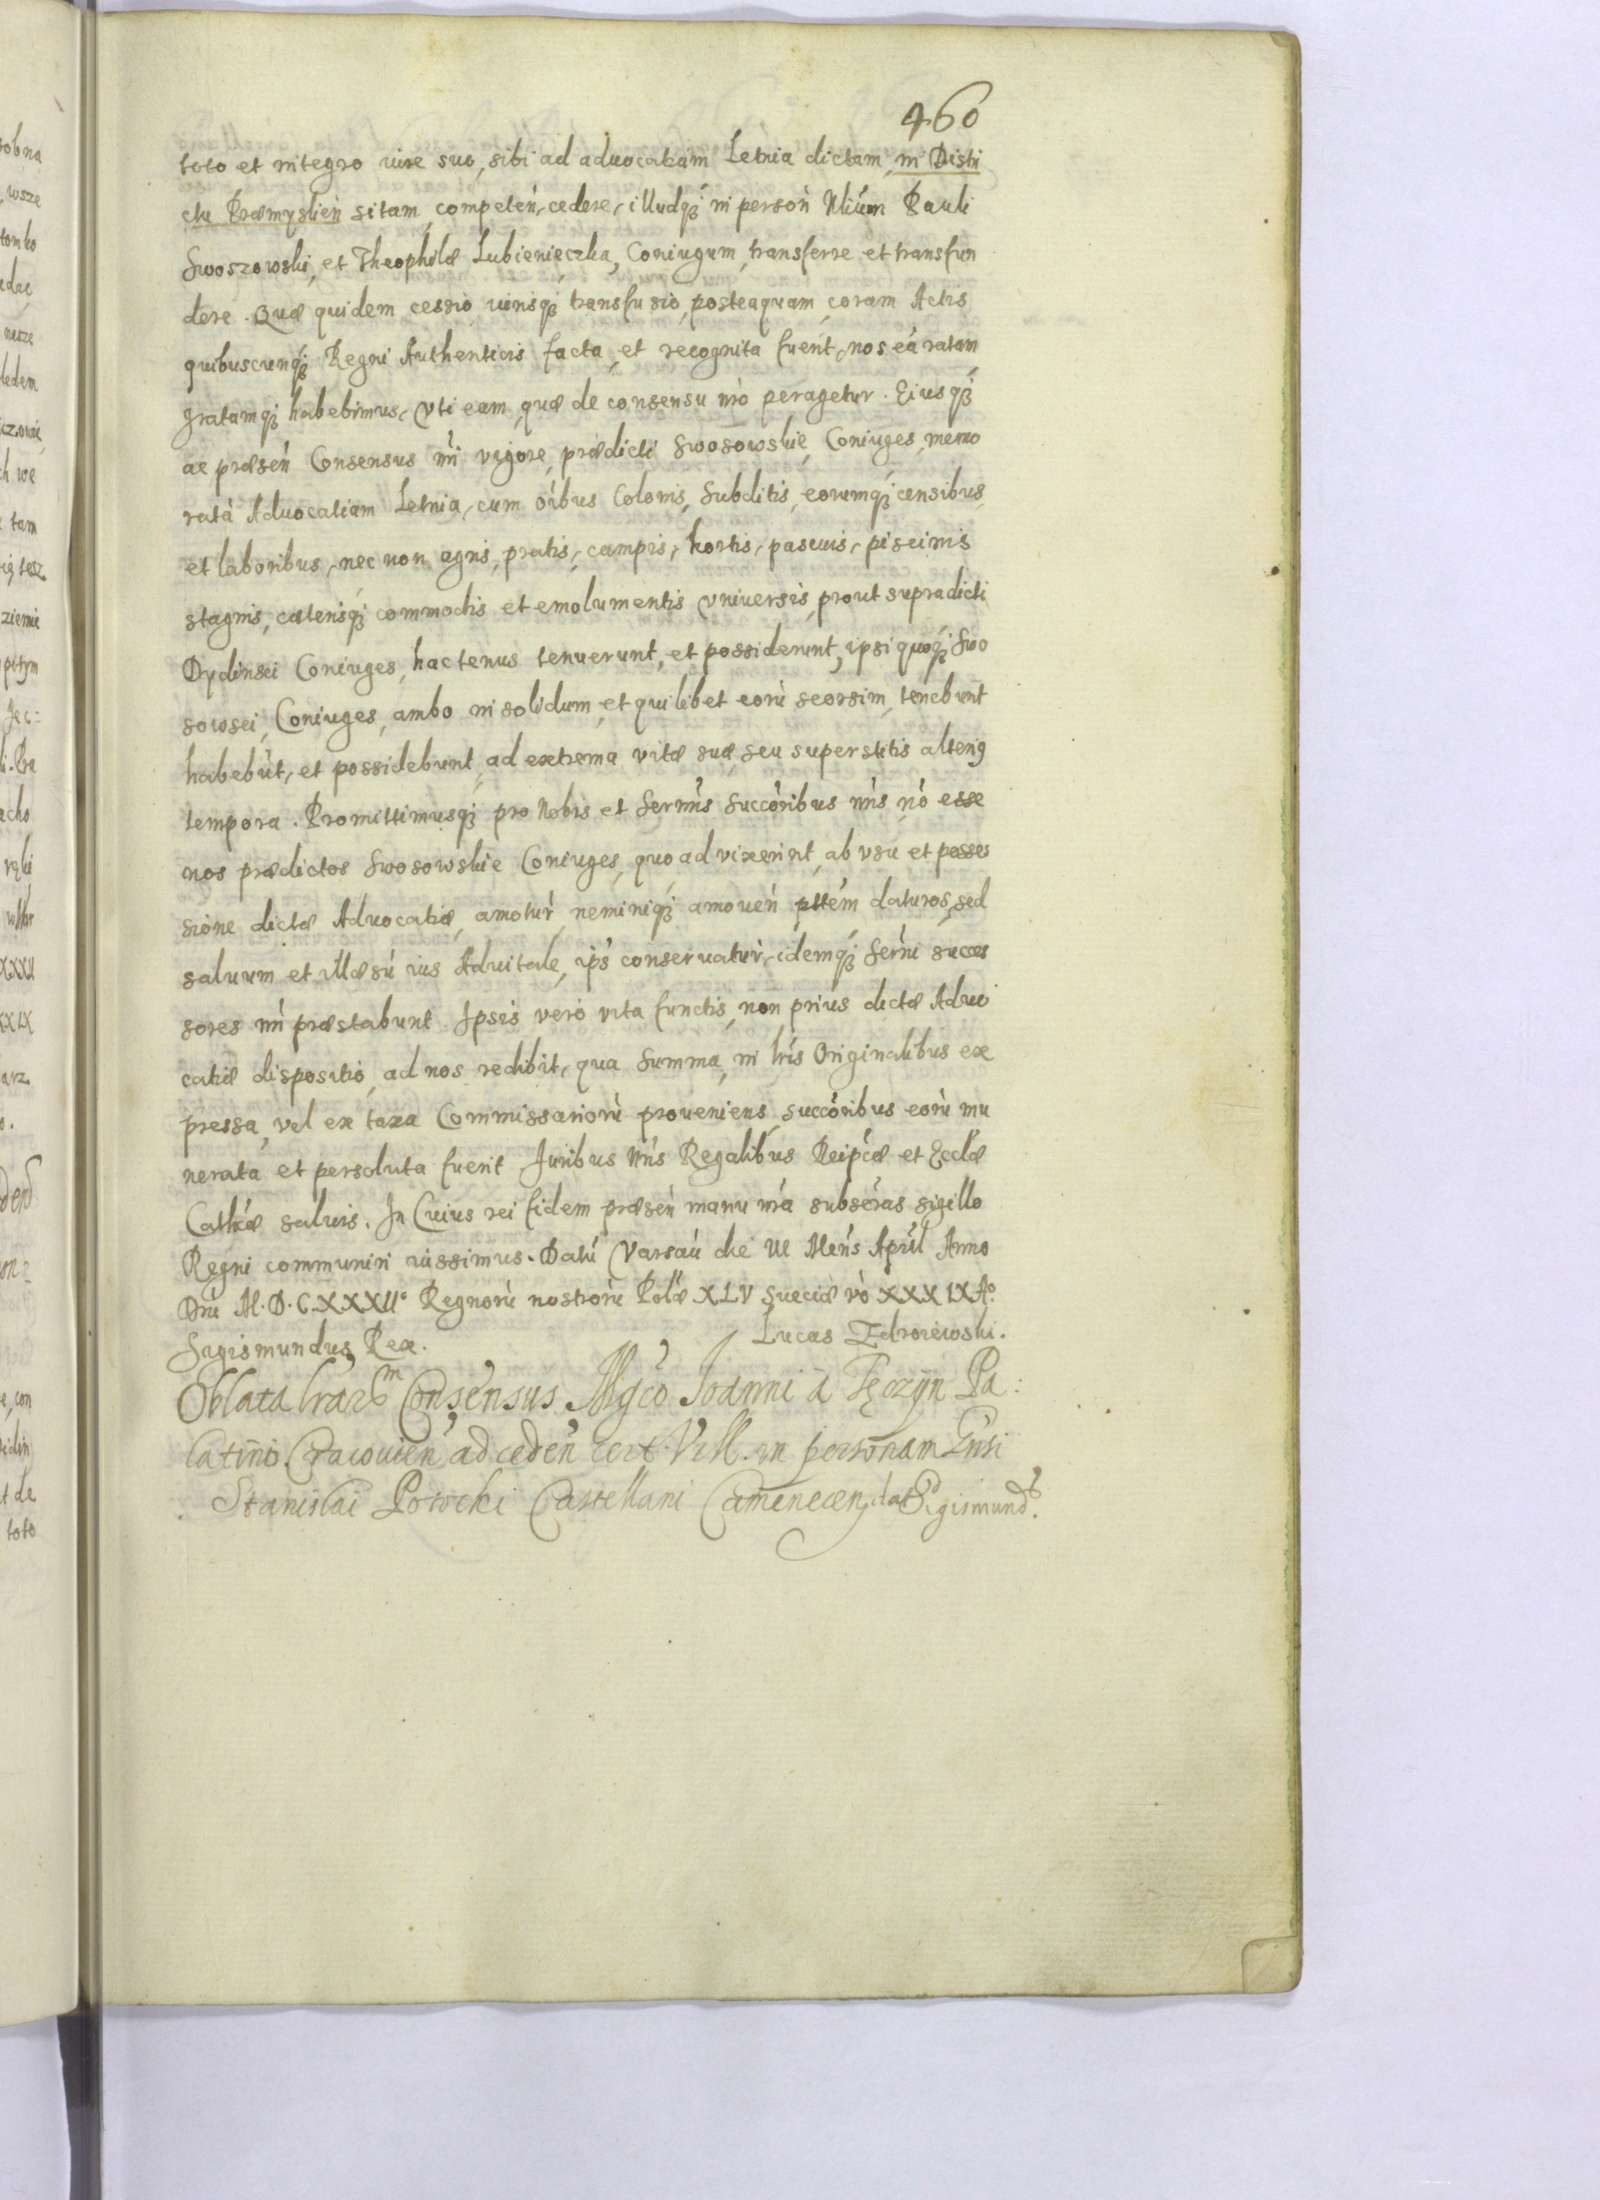 460
toto et integro iure suo, sibi ad aduocatiam Letnia dictam, in Distri
ctu Præmyslień sitam, competeń, cedere, illudq3 in persoń Nlium Pauli
Swoszowski, et Theophilæ Lubienieczka, Coniugum, transferre et transfun
dere. Quæ quidem cessio, iurisq3 transfusio, posteaquam, coram Actis
quibuscunq3 Regni Authenticis facta, et recognita fuerit, nos eá ratam
gratamq3 habebimus, vti eam, quæ de consensu nro peragetur. Eiusq3
ac præseń Consensus nri vigore, prædicti Swosowskie, Coniuges, memo
ratá Aduocatiam Letnia, cum oibus Colonis, Subditis, eorumq3 censibus,
et laboribus, nec non agris, pratis, campis, hortis, pascuis, piscinis
stagnis, cæterisq3 commodis et emolumentis vniuersis, prout supradicti
Dydinsci Coniuges, hactenus tenuerunt, et possiderunt, ipsi quoq3 Swo
sowsci, Coniuges, ambo in solidum, et quilibet eorú seorsim, tenebunt
habebút, et possidebunt, ad extrema vitæ suæ, seu superstitis alterig
tempora. Promittimusq3 pro Nobis et Sermis Succoribus nris nó esse
nos prædictos Swosowskie Coniuges, quo ad vixerint, ab vsu et posses
sione dictæ Aduocatiæ, amotur, neminiq3 amoueń pttém daturos, sed
saluum et illæsú ius Aduitale, ips conseruatur, idemq3 Serni succes
sores nri præstabunt. Ipsis vero vita functis, non prius dictæ Aduo
catiæ dispositio, ad nos redibit, qua Summa, in lris Originalibus ex
pressa, vel ex taxa Commissariorú proueniens, succoribus eorú mu
nerata et persoluta fuerit Juribus Nris Regalibus Reipcæ et Ecclæ
Cathcæ saluis. In Cuius rei fidem præseń manu nra subscras sigillo
Regni communiri iussimus. Datú Varsaú die VI Mens April Anno
Dni M.D.C.XXXII° Regnorú nostrorú Polæ XLV Sueciæ vò XXXIX A°.
Sigismundus Rex. Lucas Zdroiewski.
Oblata lrarm Consensus Mgco Joanni à Tęczyn Pa:
latino Cracouień ad cedeń cert. Vill. in personam Gnsi
Stanislai Potocki Castellani Camenecen, dat Sigismund9.